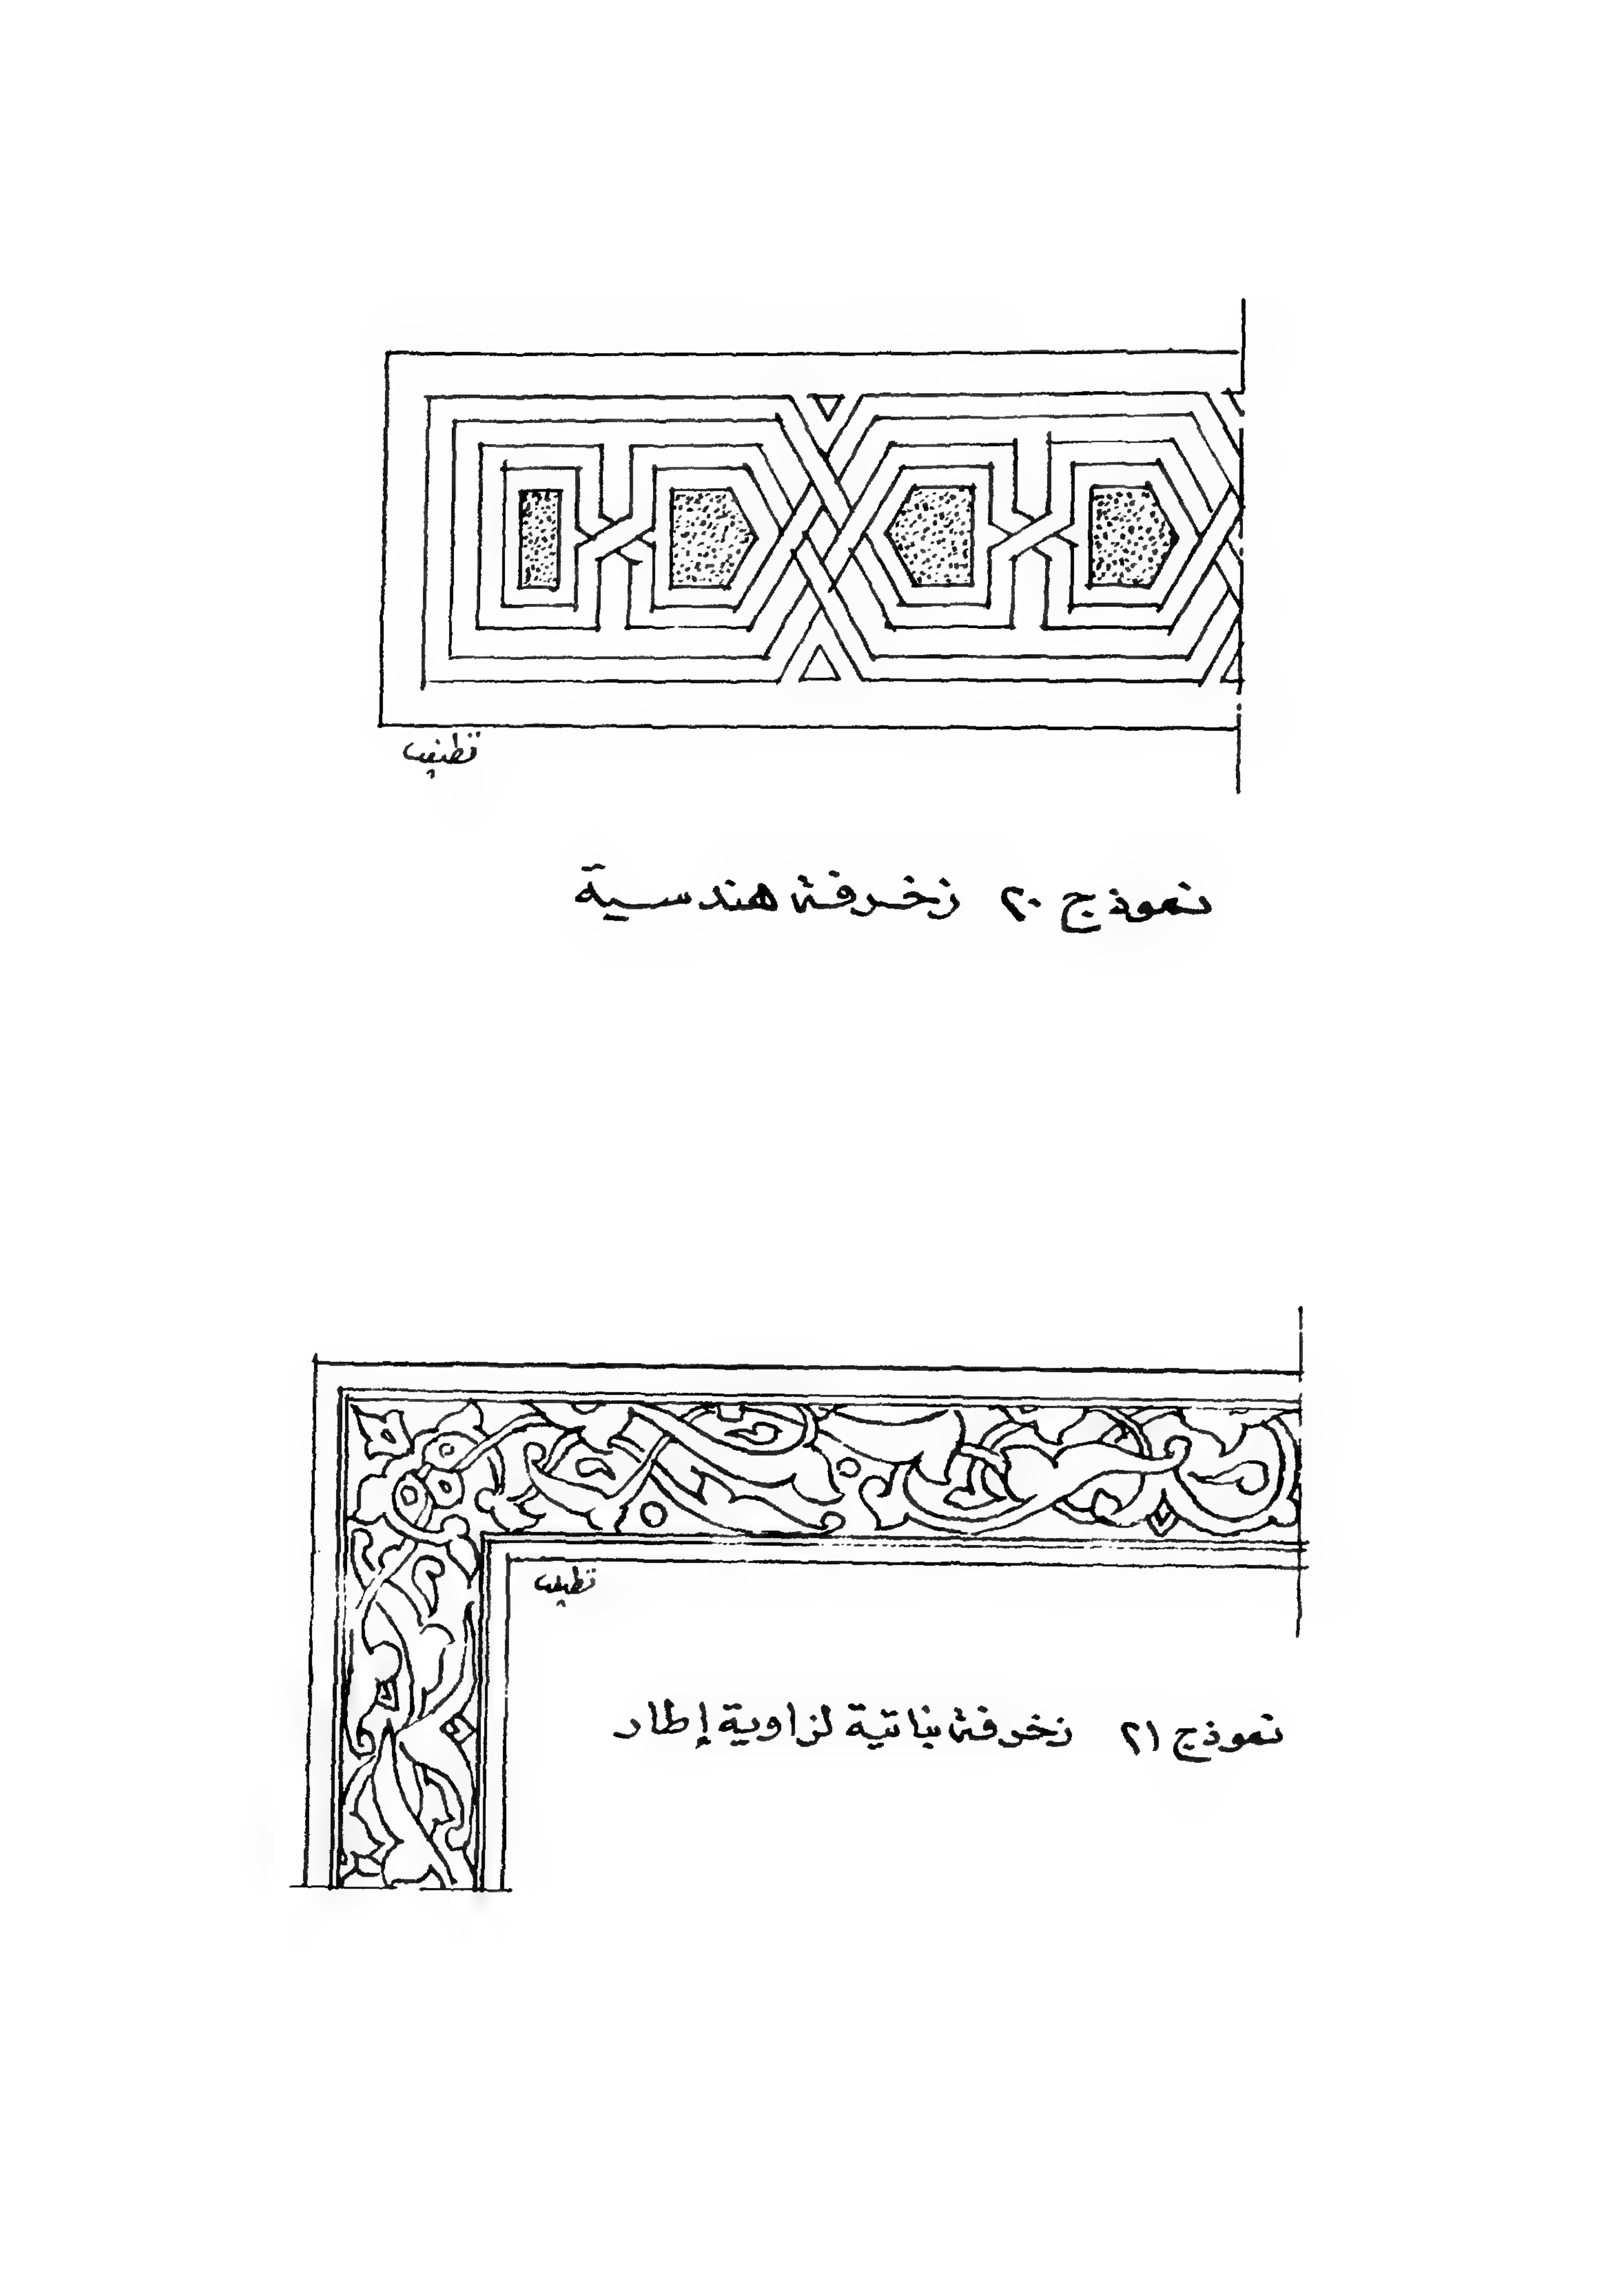 نموذج ٢٠ زخرفة هندسية
نموذج ٢١ زخرفة نباتية لزاوية إطار